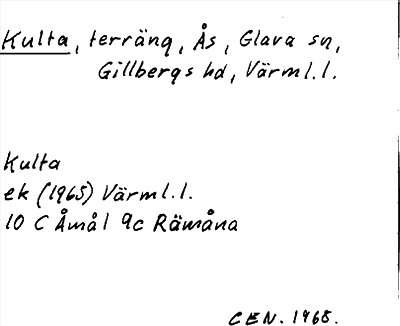 Kulta, terräng, Ås, Glava sn,
Gillbergs hd, Värml.l.
Kulta
ek (1965) Värml.l.
10 C Åmål 9c Rämåna
CEN. 1968.